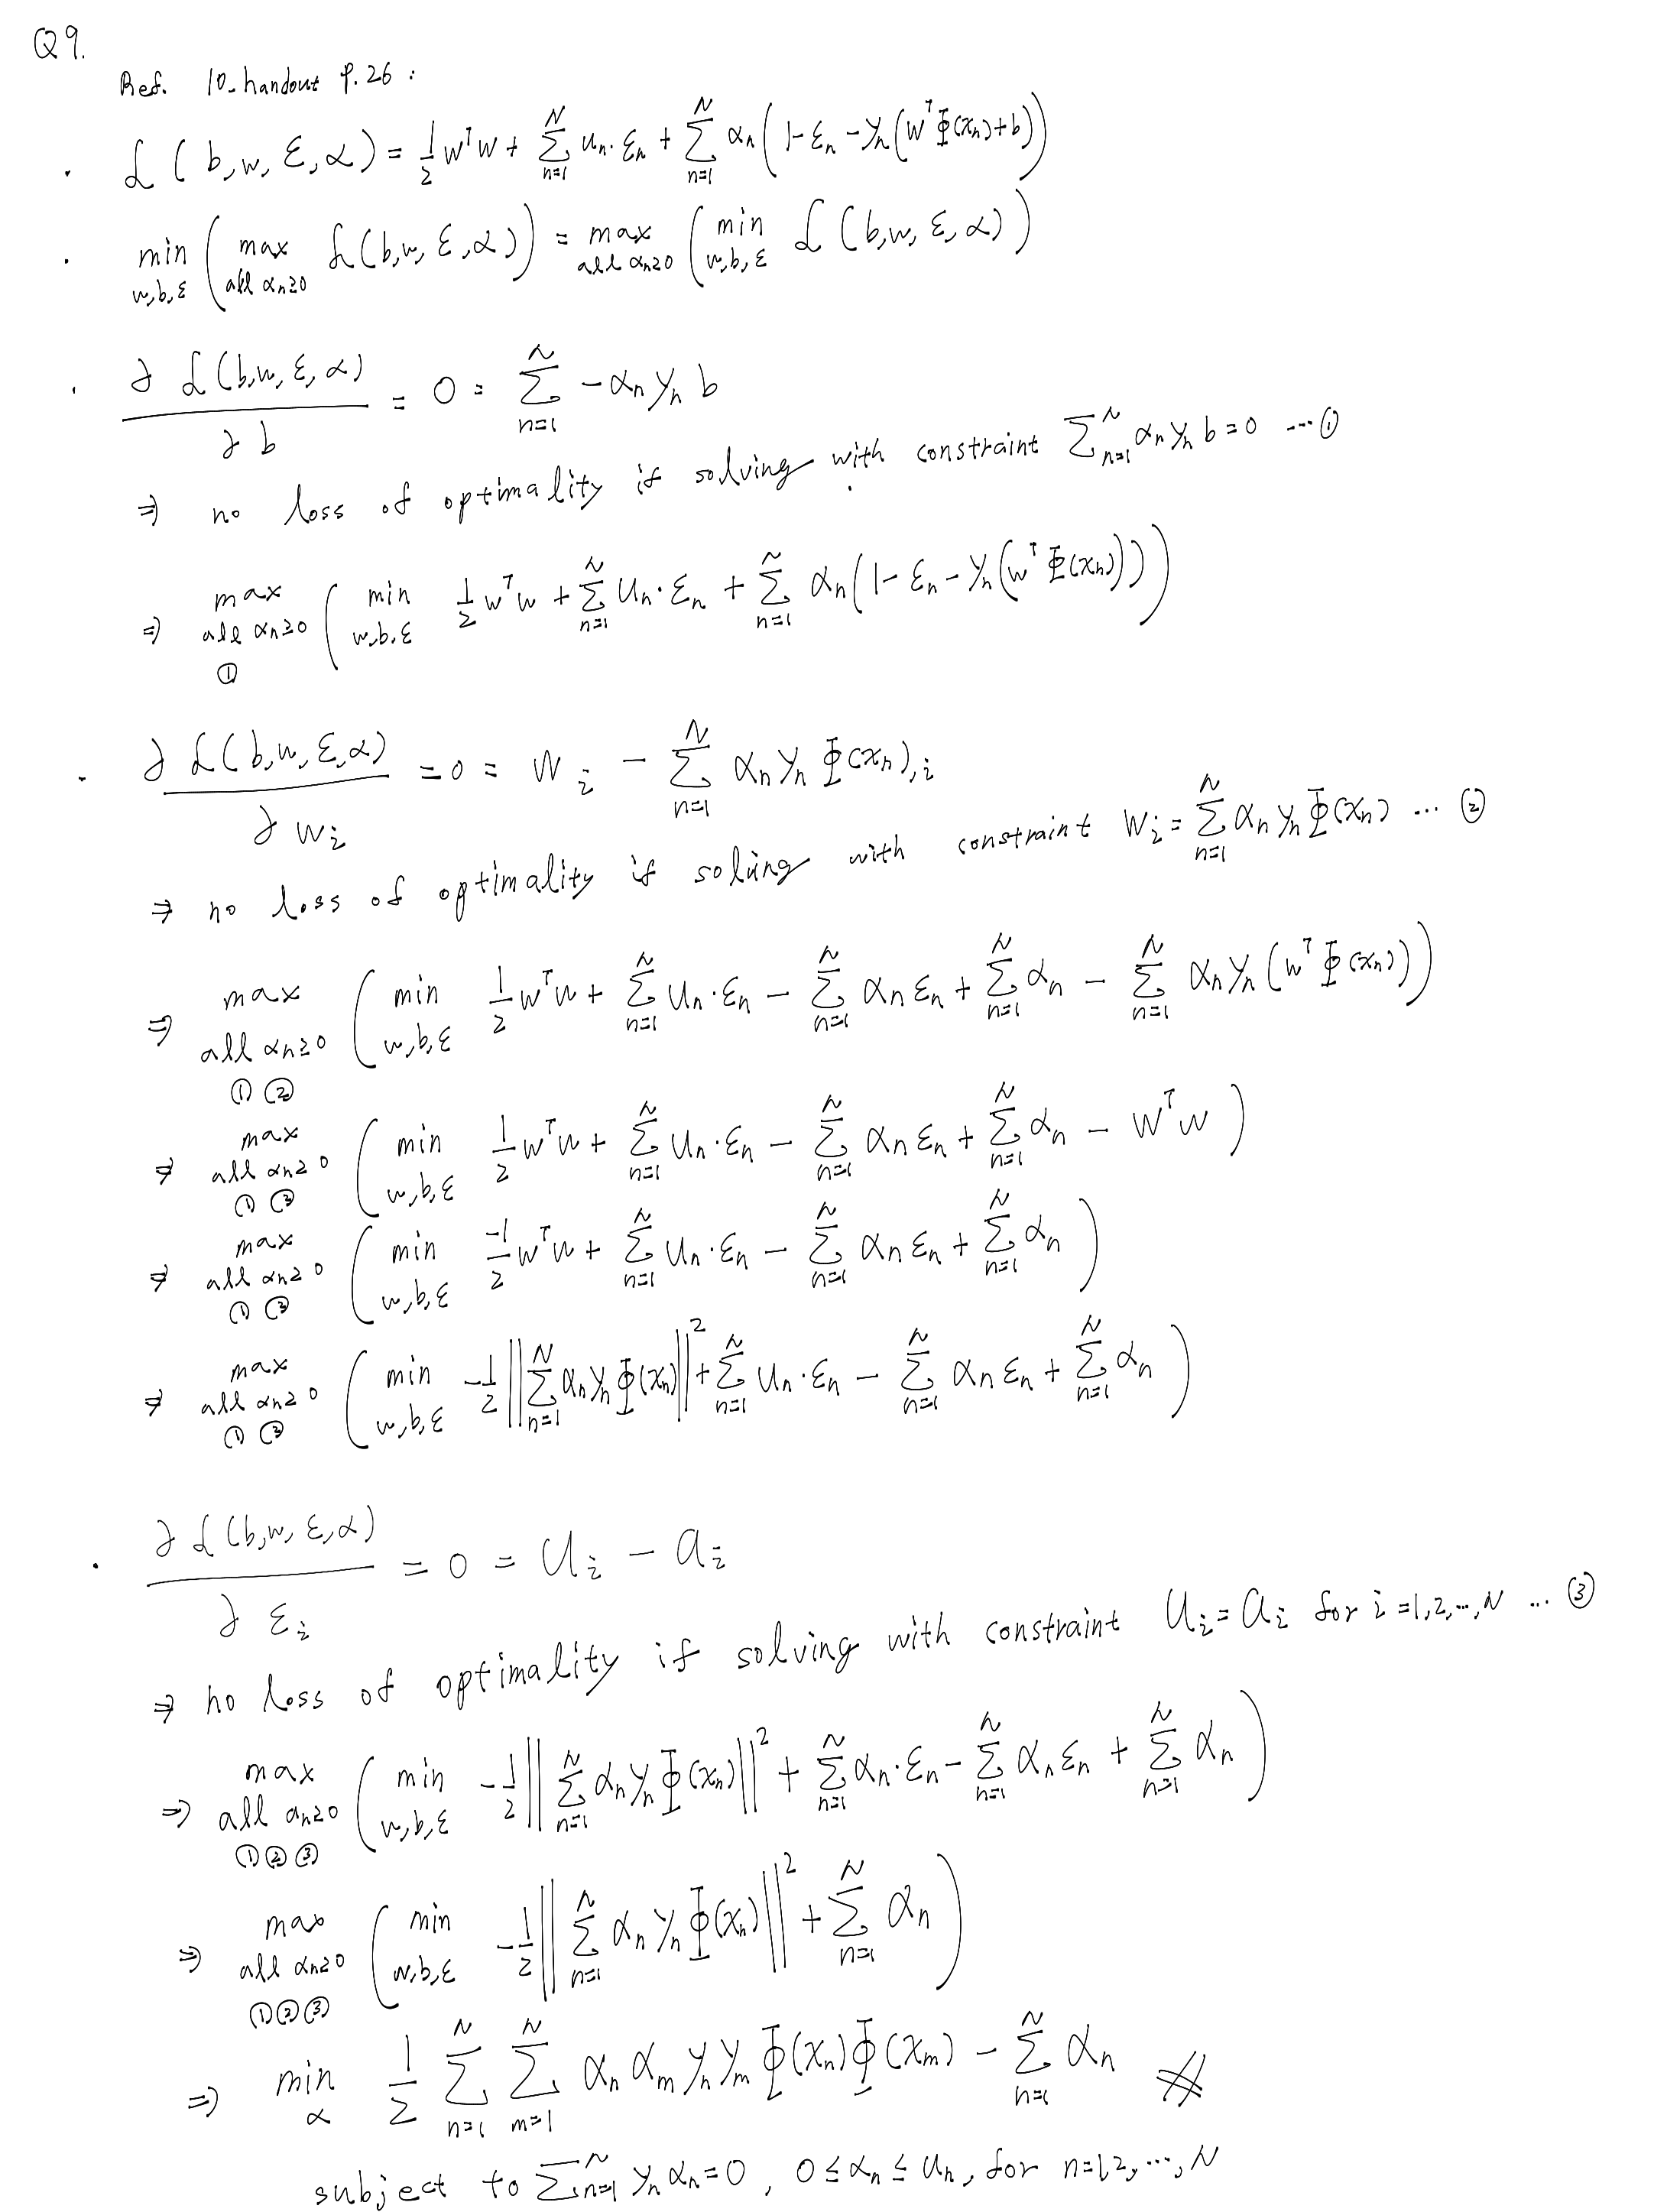 Q9.
Ref. 10_handout P.26 :
· L(b,w,ε,α) = 1/2 wᵀw + Σ_{n=1}^{N} uₙ·εₙ + Σ_{n=1}^{N} αₙ(1-εₙ-yₙ(wᵀΦ(xₙ)+b))
· min_{w,b,ε} ( max_{all αₙ≥0} L(b,w,ε,α) ) = max_{all αₙ≥0} ( min_{w,b,ε} L(b,w,ε,α) )
· ∂L(b,w,ε,α)/∂b = 0 = Σ_{n=1}^{N} -αₙyₙb
⇒ no loss of optimality if solving with constraint Σ_{n=1}^{N} αₙyₙb=0 ...①
⇒ max_{all αₙ≥0 ①} ( min_{w,b,ε} 1/2 wᵀw + Σ_{n=1}^{N} uₙ·εₙ + Σ_{n=1}^{N} αₙ(1-εₙ-yₙ(wᵀΦ(xₙ))) )
· ∂L(b,w,ε,α)/∂wᵢ = 0 = wᵢ - Σ_{n=1}^{N} αₙyₙΦ(xₙ),ᵢ
⇒ no loss of optimality if solving with constraint wᵢ = Σ_{n=1}^{N} αₙyₙΦ(xₙ) ... ②
⇒ max_{all αₙ≥0 ①②} ( min_{w,b,ε} 1/2 wᵀw + Σ_{n=1}^{N} uₙ·εₙ - Σ_{n=1}^{N} αₙεₙ + Σ_{n=1}^{N} αₙ - Σ_{n=1}^{N} αₙyₙ(wᵀΦ(xₙ)) )
⇒ max_{all αₙ≥0 ①②} ( min_{w,b,ε} 1/2 wᵀw + Σ_{n=1}^{N} uₙ·εₙ - Σ_{n=1}^{N} αₙεₙ + Σ_{n=1}^{N} αₙ - wᵀw )
⇒ max_{all αₙ≥0 ①②} ( min_{w,b,ε} -1/2 wᵀw + Σ_{n=1}^{N} uₙ·εₙ - Σ_{n=1}^{N} αₙεₙ + Σ_{n=1}^{N} αₙ )
⇒ max_{all αₙ≥0 ①②} ( min_{w,b,ε} -1/2 ||Σ_{n=1}^{N} αₙyₙΦ(xₙ)||² + Σ_{n=1}^{N} uₙ·εₙ - Σ_{n=1}^{N} αₙεₙ + Σ_{n=1}^{N} αₙ )
· ∂L(b,w,ε,α)/∂εᵢ = 0 = uᵢ - aᵢ
⇒ no loss of optimality if solving with constraint uᵢ=aᵢ for i=1,2,...,N ... ③
⇒ max_{all aₙ≥0 ①②③} ( min_{w,b,ε} -1/2 ||Σ_{n=1}^{N} αₙyₙΦ(xₙ)||² + Σ_{n=1}^{N} αₙ·εₙ - Σ_{n=1}^{N} αₙεₙ + Σ_{n=1}^{N} αₙ )
⇒ max_{all αₙ≥0 ①②③} ( min_{w,b,ε} -1/2 ||Σ_{n=1}^{N} αₙyₙΦ(xₙ)||² + Σ_{n=1}^{N} αₙ )
⇒ min_{α} 1/2 Σ_{n=1}^{N} Σ_{m=1}^{N} αₙαₘyₙyₘΦ(xₙ)Φ(xₘ) - Σ_{n=1}^{N} αₙ #
subject to Σ_{n=1}^{N} yₙαₙ=0, 0≤αₙ≤uₙ, for n=1,2,...,N